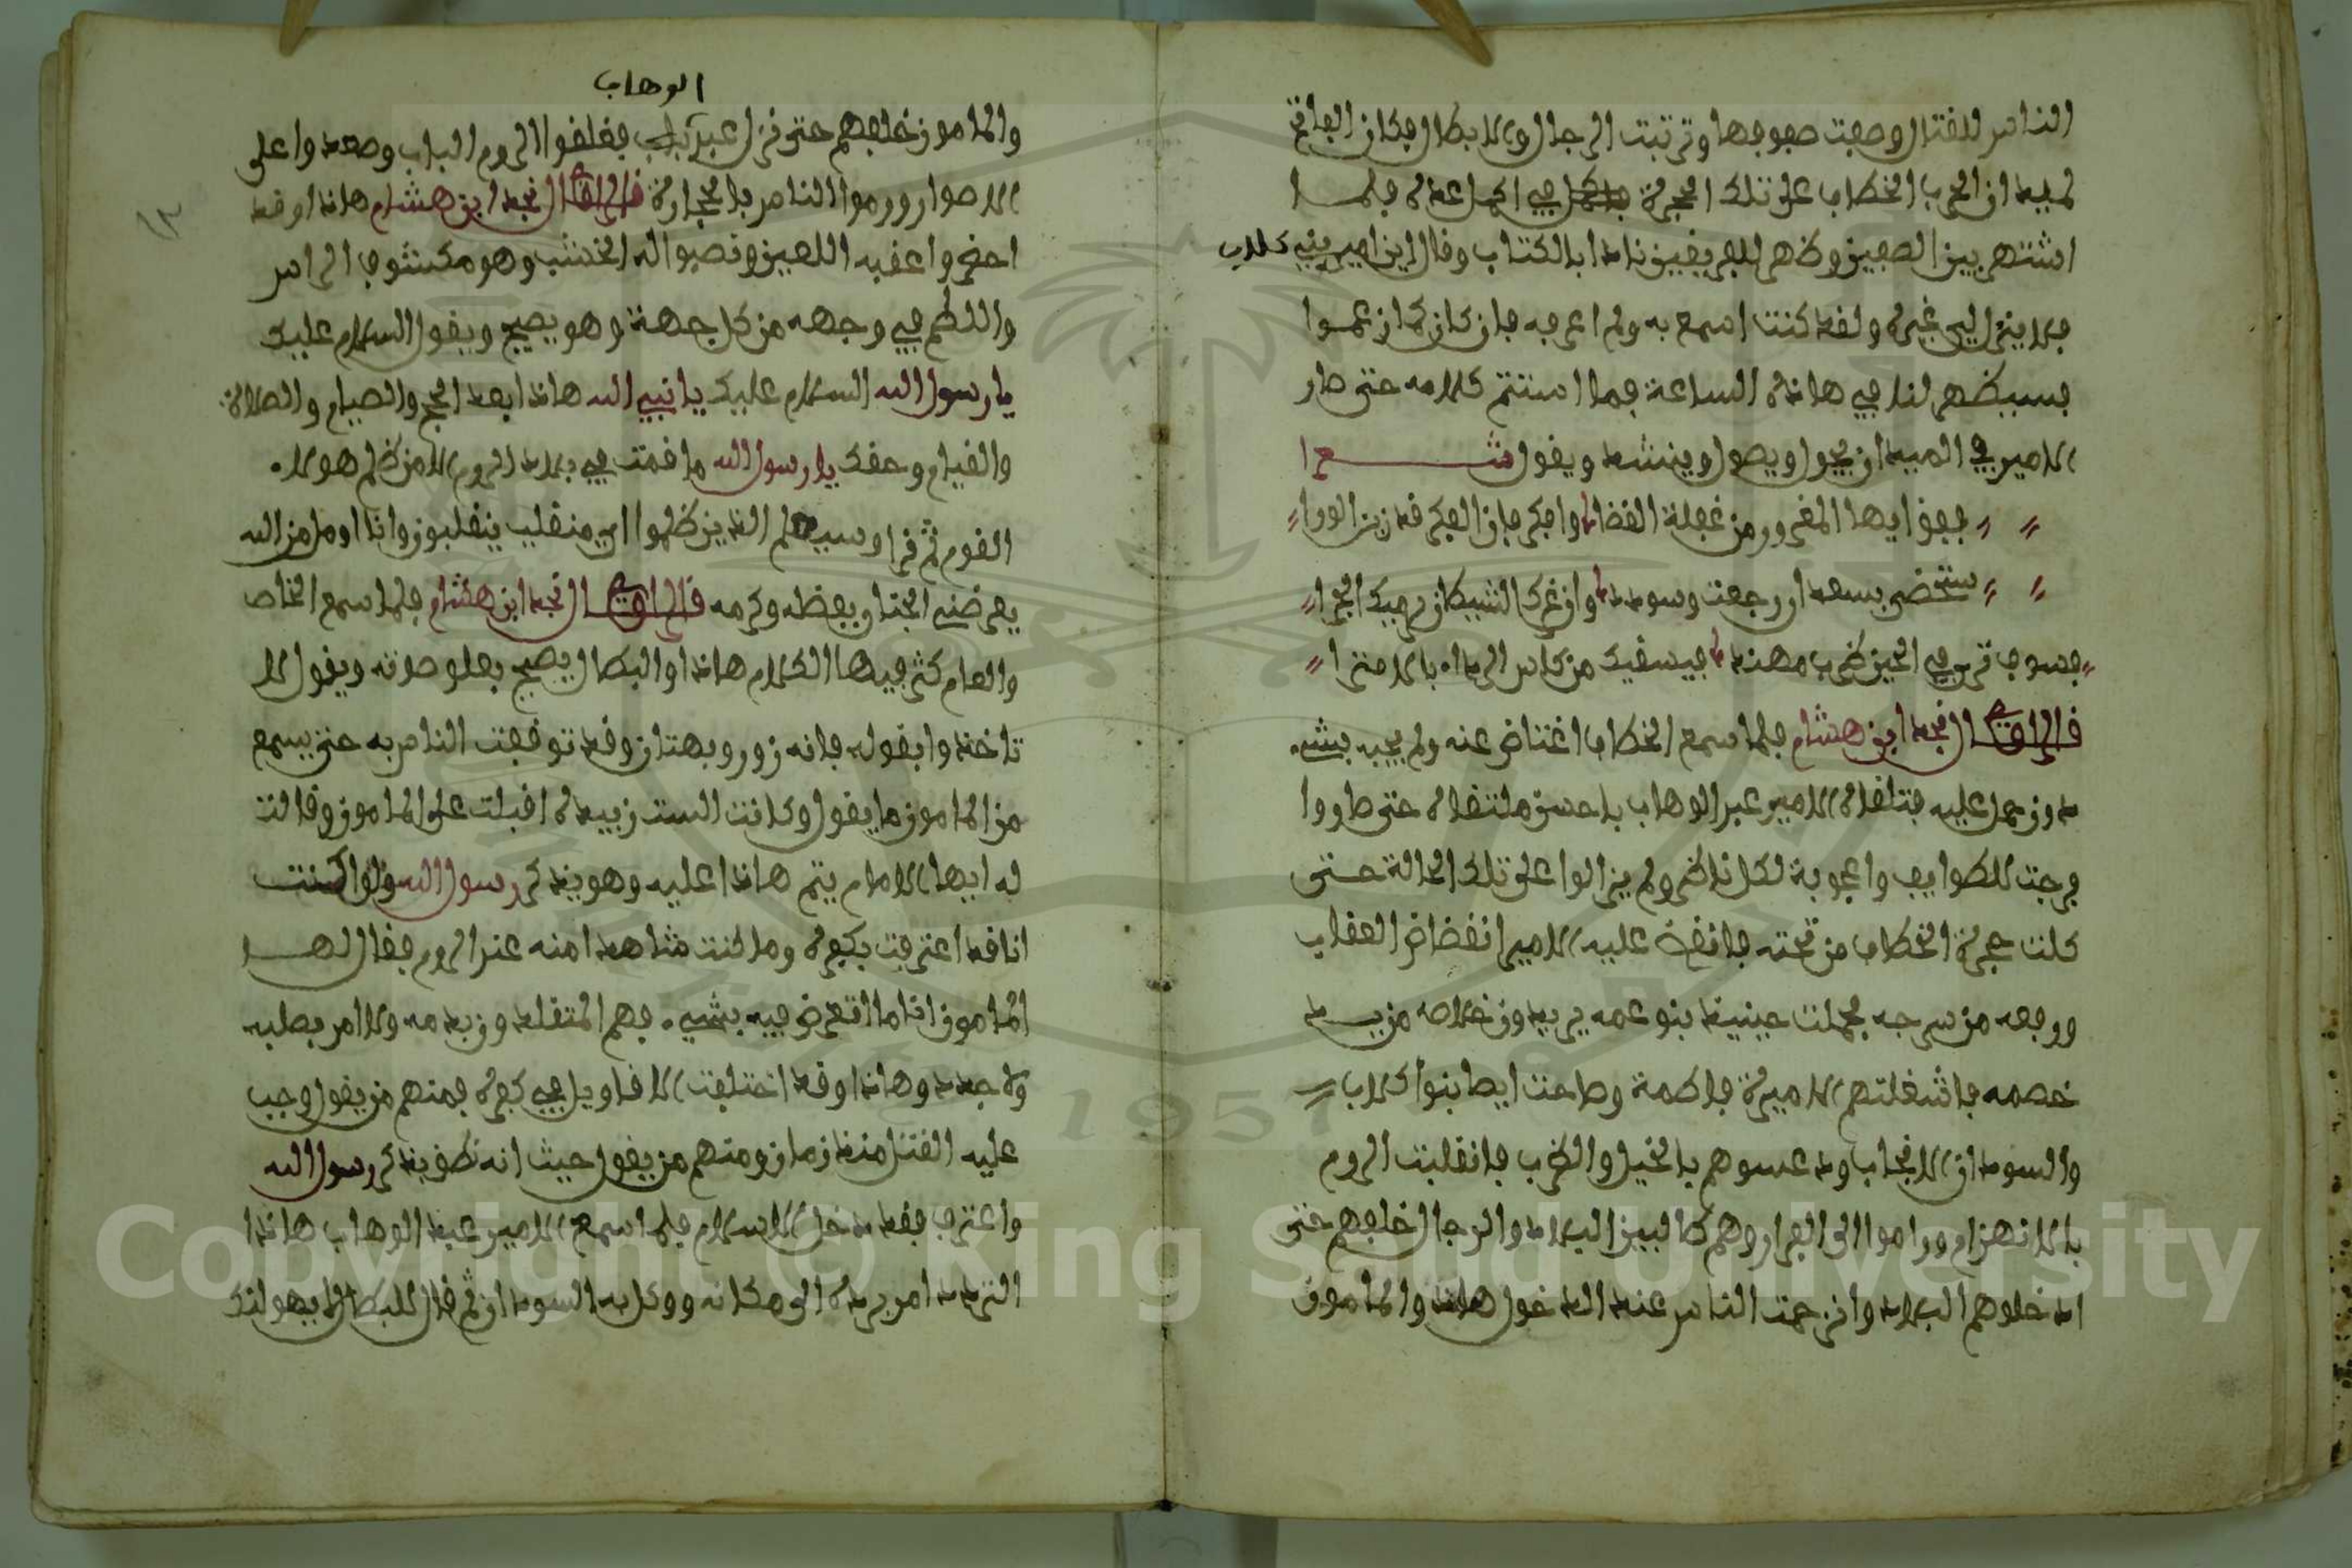 الناس للقتال وصفت صفوفها وترتبت الرجال والابطال فكان الفاتح
لميدان الحرب الخطاب على تلك الحجرة فلما
اشتهر بين الصفين وظهر للفريقين نادا بالكتاب وقال اين امير بني كلاب
فلا ينزل الي غيره ولقد كنت اسمع به ولم اعرفه فان كان كان عموا
فسيظهر لنا في هاذه الساعة فما استتم كلامه حتى صار
الامير في الميدان يجول ويصول وينشد ويقول شعرا
ففق ايها المغرور من غفلة القضا وافكر فان الفكر قد زين الورا
ستحضى بسعد ان رجعت وسودد وان غرك الشيطان يرميك الحرا
فسوف ترى في الحين ضرب مهند فيسقيك من كاس الرداء بالامترا
قال الراوي نجد ابن هشام فلما سمع الخطاب اغتاض عنه ولم يجبه بشيء
دون حمل عليه فتلقاه الامير عبد الوهاب باحسن ملتقاه حتى صاروا
فرجت للطوايف واعجوبة لكل ناظر ولم يزالوا على تلك الحالة حتى
كلت حجرة الخطاب من تحته فانقض عليه الامير انقضاض العقاب
ورفعه من سرجه فحملت حينيذ بنو عمه يريدون خلاصه من يد
خصمه فاشغلتهم الاميرة فاطمة وصاحت ايضا بنوا كلاب
والسودان الانجاب ودعسوهم بالخيل والضرب فانقلبت الروم
بالانهزام وراموا الى الفرار وهم طالبين البلاد والرجال خلفهم حتى
ادخلوهم البلاد وازدحمت الناس عند الدخول هاذا والمامون
الوهاب
والمامون خلفهم حتى نزل عبد فغلقوا الروم الباب وصعدوا على
الاصوار ورموا الناس بالحجارة قال الراوي نجد ابن هشام هاذا وقد
احضروا عقبه اللعين ونصبوا له الخشب وهو مكشوف الراس
واللطم في وجهه من كل جهة وهو يصيح ويقول السلام عليك
يا رسول الله السلام عليك يا نبي الله هاذا بعد الحج والصيام والصلاة
والقيام وحقك يا رسول الله ما قمت في بلاد الروم الا من ظلم هولاء
القوم ثم قرا وسيعلم الذين ظلموا اي منقلب ينقلبون وانا اومل من الله
يعرضني الجنان بفضله وكرمه قال الراوي نجد ابن هشام فلما سمع الخاص
والعام كثر فيها الكلام هاذا والبطال يصيح بعلو صوته ويقول لا
تاخذوا بقوله فانه زور وبهتان وقد توقفت الناس به حتى يسمع
من المامون ما يقول وكانت الست زبيدة اقبلت على المامون وقالت
له ايها الامام يتم هاذا عليه وهو يذكر رسول الله ولو كنت
انا قد اعترفت بكفره وما كنت شاهدا منه عند الروم فقال لها
المامون انا ما اتعرض فيه بشيء فهم المتقلدون بدمه ولا امر بصلبه
ولا جحد وهاذا وقد اختلفت الاقاويل في كفره فمنهم من يقول وجب
عليه القتل منذ زمان ومنهم من يقول حيث انه نطق يذكر رسول الله
واعترف فقد دخل الاسلام فلما سمع الامير عبد الوهاب هاذا
التردد امر برده الى مكانه ووكل به السودان ثم قال للبطال لا يهولنك